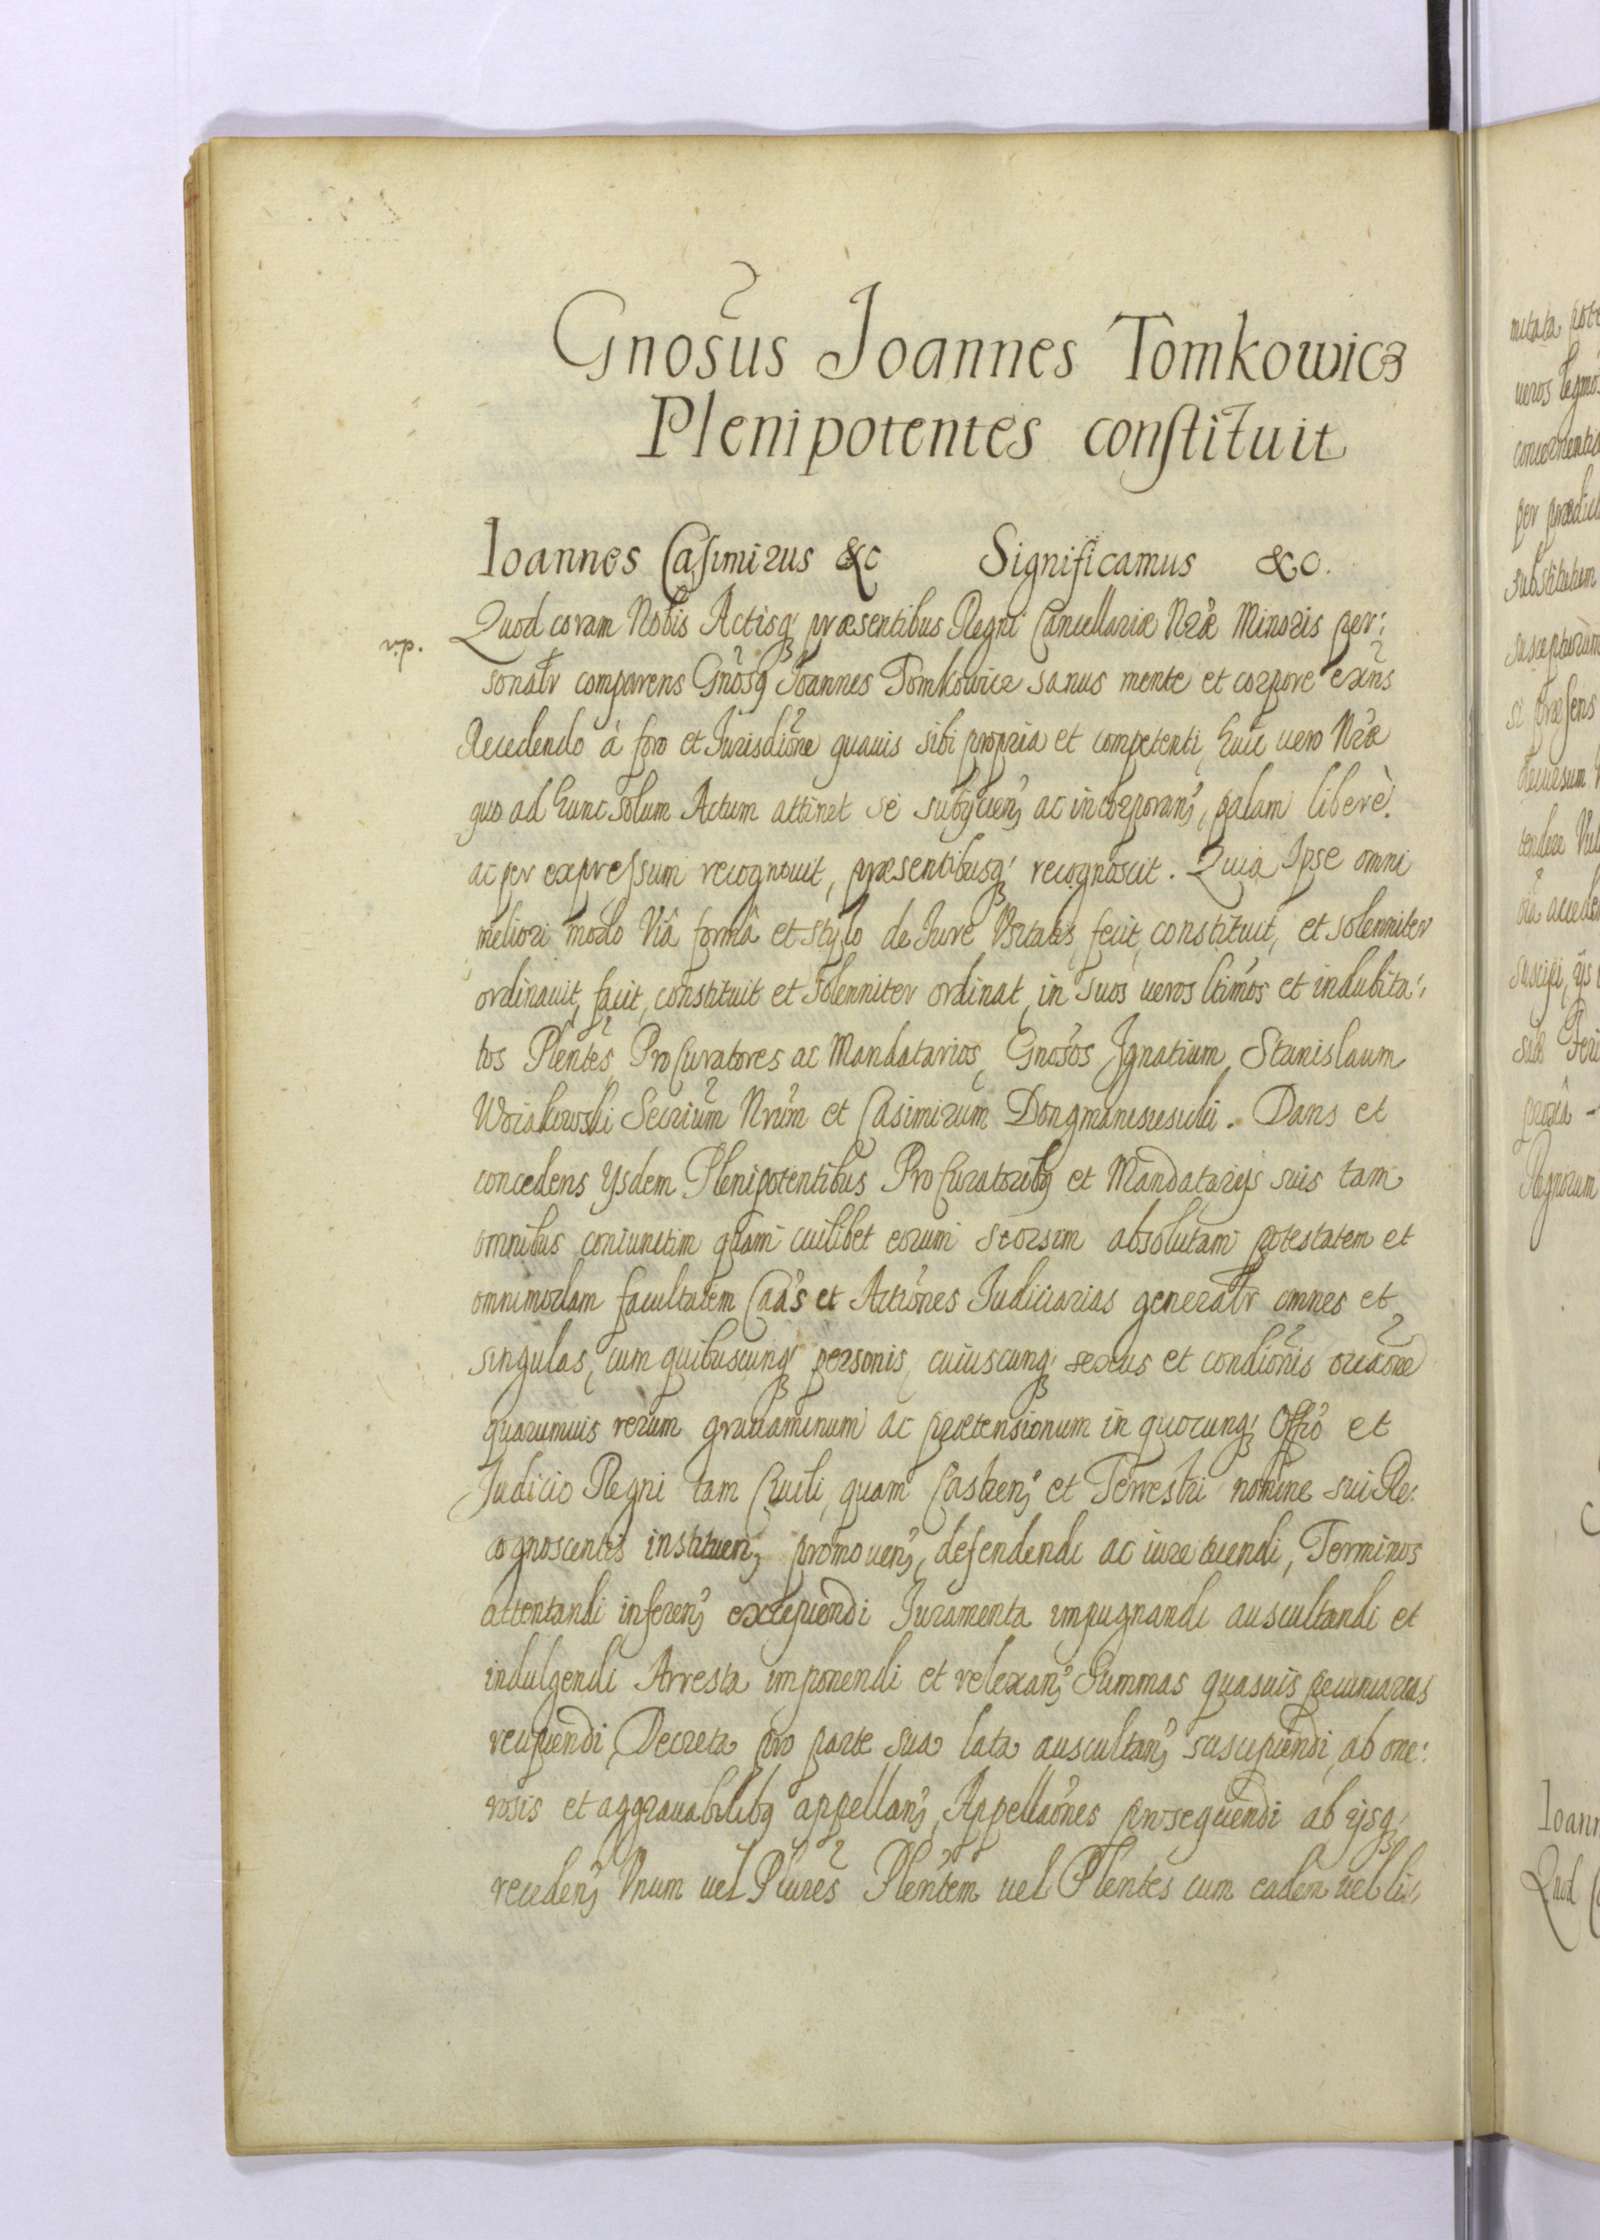 Gnosus Joannes Tomkowicz
Plenipotentes constituit
Ioannes Casimirus &c Significamus &c.
Quod coram Nobis Actisq; præsentibus Regni Cancellariæ Nræ Minoris per:
sonalr comparens Gnosq Joannes Tomkowicz sanus mente et corpore exns
Recedendo à foro et Jurisdione quauis sibi propria et competenti, huic uero Nræ
quo ad hunc solum Actum attinet se subijcien; ac incorporan;, palam liberè.
ac per expressum recognouit, præsentibusq; recognoscit. Quia Ipse omni
meliori modo Viâ formâ et stylo de Jure Vsitatis, fecit, constituit, et solenniter
ordinauit, facit, constituit et solenniter ordinat, in suos ueros ltimos et indubita:
tos Plentes ProCuratores ac Mandatarios, Gnosos Ignatium, Stanislaum
Woiakowski Secrium Nrum et Casimirum Dans et
concedens ysdem Plenipotentibus ProCuratoribq et Mandatarijs suis tam
omnibus coniunctim quam cuilibet eorum seorsim absolutam potestatem et
omnimodam facultatem Caas et Actiones Judiciarias generalr omnes et
singulas, cum quibuscunq; personis, cuiuscunq; sexus et condionis oraone
quarumuis rerum grauaminum ac prætensionum in quocunq; Offio et
Judicio Regni tam Ciuili, quam Castren; et Terrestri nomine sui Re:
cognoscentis instituen; promouen;, defendendi ac iure tuendi, Terminos
attentandi inferen; excipiendi Juramenta impugnandi auscultandi et
indulgendi Arresta imponendi et relexan; Summas quasuis pecuniarias
recipiendi, Decreta pro parte sua lata auscultan; suscipiendi, ab one:
rosis et aggrauabilibq appellan;, Appellaones prosequendi ab ijsq;
receden; Vnum uel Plures Plentem uel Plentes cum eadem uel li: